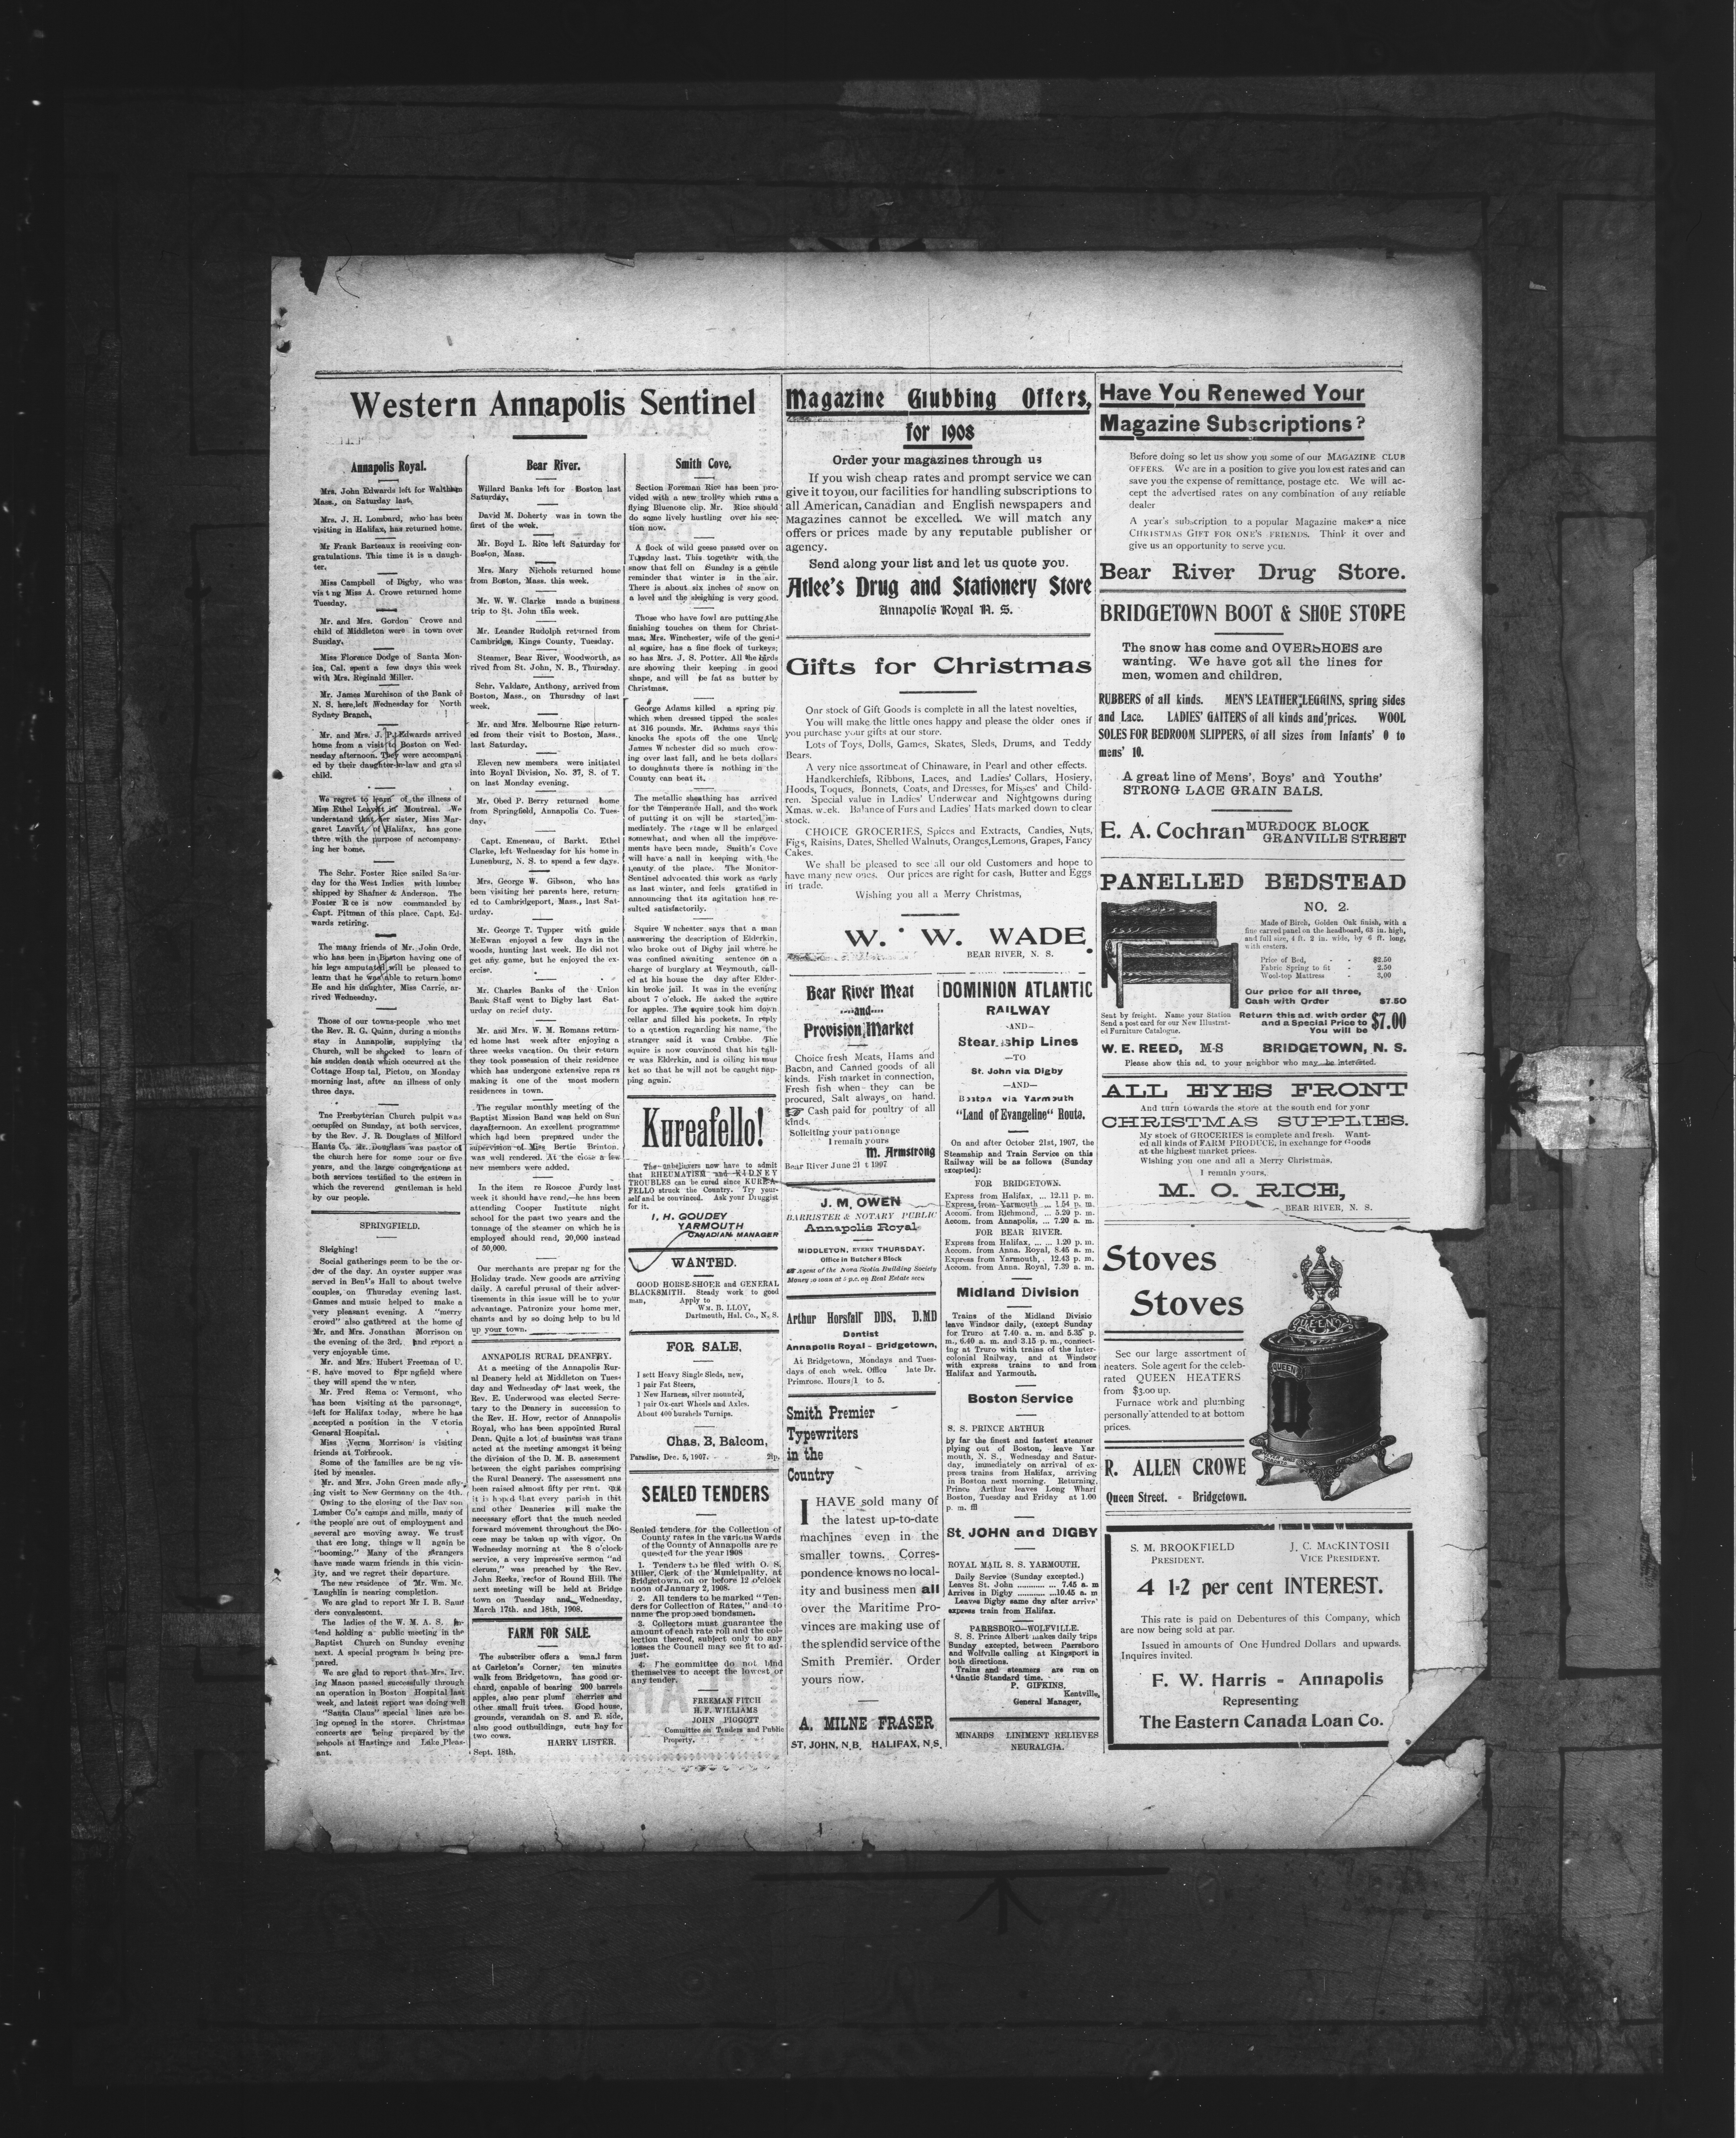 Western Annapolis Sentinel
Annapolis Royal.
Mrs. John Edwards left for Waltham
Mass., on Saturday last,
Mrs. J. H. Lombard, who has been
visiting in Halifax, has returned home.
Mr Frank Barteaux is receiving con-
gratulations. This time it is a daugh-
ter.
Miss Campbell of Digby, who was
vis t ng Miss A. Crowe returned home
Tuesday.
Mr. and Mrs. Gordon Crowe and
child of Middleton were in town over
Sunday,
Miss Florence Dodge of Santa Mon-
ica, Cal. spent a few days this week
with Mrs. Reginald Miller.
Mr. James Murchison of the Bank of
N. S. here, left Wednesday for North
Sydney Branch,
Mr. and Mrs. J. P. Edwards arrived
home from a visit to Boston on Wed-
nesday afternoon. They were accompani
ed by their daughter-in-law and grand
child.
We regret to learn of the illness of
Miss Ethel Leavitt in Montreal. We
understand that her sister, Miss Mar-
garet Leavitt, of Halifax, has gone
there with the purpose of accompany-
ing her home.
The Schr. Foster Rice sailed Satur-
day for the West Indies with lumber
shipped by Shafner & Anderson. The
Foster Rice is now commanded by
Capt. Pitman of this place. Capt. Ed-
wards retiring.
The many friends of Mr. John Orde,
who has been in Boston having one of
his legs amputated will be pleased to
learn that he was able to return home
He and his daughter, Miss Carrie, ar-
rived Wednesday.
Those of our towns-people who met
the Rev. R. G. Quinn, during a months
stay in Annapolis, supplying the
Church, will be shocked to learn of
his sudden death which occurred at the
Cottage Hosp tal, Pictou, on Monday
morning last, after an illness of only
three days.
Tne Presbyterian Church pulpit was
occupied on Sunday, at both services,
by the Rev. J. R. Douglass of Milford
Hants Co. Mr. Douglass was pastor of
the church here for some four or five
years, and the large congregations at
both services testified to the esteem in
which the reverend gentleman is held
by our people.
SPRINGFIELD.
Sleighing!
Social gatherings seem to be the or-
der of the day. An oyster supper was
served in Bent's Hall to about twelve
couples, on Thursday evening last.
Games and music helped to make a
very pleasant evening. A "merry
crowd" also gathered at the home of
Mr. and Mrs. Jonathan Morrison on
the evening of the 3rd, and report a
very enjoyable time.
Mr. and Mrs. Hubert Freeman of U.
S. have moved to Spr ngfield where
they will spend the w nter.
Mr. Fred Rema o: Vermont, who
has been visiting at the parsonage,
left for Halifax today, where he has
accepted a position in the V ctoria
General Hospital.
Miss Verna Morrison is visiting
friends at Torbrook.
Some of the families are be ng vis-
ited by measles.
Mr. and Mrs. John Green made a fly-
ing visit to New Germany on the 4th.
Owing to the closing of the Dav son
Lumber Co's camps and mills, many of
the people are out of employment and
several are moving away. We trust
that ere long, things w ll again be
"booming." Many of the strangers
have made warm friends in this vicin-
ity, and we regret their departure.
The new residence of Mr. Wm. Mc.
Laughlin is nearing completion.
We are glad to report Mr I. B. Saun
ders convalescent.
The ladies of the W. M. A. S. in-
tend holding a public meeting in the
Baptist Church on Sunday evening
next. A special program is being pre-
pared.
We are glad to report that Mrs. Irv.
ing Mason passed successfully through
an operation in Boston Hospital last
week, and latest report was doing well
"Santa Claus" special lines are be-
ing opened in the stores. Christmas
concerts are being prepared by the
schools at Hastings and Lake Pleas-
ant.
Bear River.
Willard Banks left for Boston last
Saturday,
David M. Doherty was in town the
first of the week.
Mr. Boyd L. Rice left Saturday for
Boston, Mass.
Mrs. Mary Nichols returned home
from Boston, Mass. this week.
Mr. W. W. Clarke made a business
trip to St. John this week.
Mr. Leander Rudolph returned from
Cambridge, Kings County, Tuesday.
Steamer, Bear River, Woodworth, as
rived from St. John, N. B., Thursday.
Schr. Valdare, Anthony, arrived from
Boston, Mass., on Thursday of last
week.
Mr. and Mrs. Melbourne Rice return-
ed from their visit to Boston, Mass.,
last Saturday.
Eleven new members were initiated
into Royal Division, No. 37, S. of T.
on last Monday evening.
Mr. Obed P. Berry returned home
from Springfield, Annapolis Co. Tues-
day,
Capt. Emeneau, of Barkt. Ethel
Clarke, left Wednesday for his home in
Lunenburg, N. S. to spend a few days.
Mrs, George W. Gibson, who has
been visiting her parents here, return-
ed to Cambridgeport, Mass., last Sat-
urday.
Mr. George T. Tupper with guide
McEwan enjoyed a few days in the
woods, hunting last week. He did not
get any game, but he enjoyed the ex-
ercise.
Mr. Charles Banks of the Union
Bank Staff went to Digby last Sat-
urday on relief duty.
Mr. and Mrs. W. M. Romans return-
ed home last week after enjoying a
three weeks vacation. On their return
they took possession of their residence
which has undergone extensive repa rs
making it one of the most modern
residences in town.
The regular monthly meeting of the
Baptist Mission Band was held on Sun
dayafternoon. An excellent programme
which had been prepared under the
supervision of Miss Bertie Brinton.
was well rendered. At the close a few
new members were added.
In the item re Roscoe Purdy last
week it should have read,—he has been
attending Cooper Institute night
school for the past two years and the
tonnage of the steamer on which he is
employed should read, 20,000 instead
of 50,000.
Our merchants are prepar ng for the
Holiday trade. New goods are arriving
daily. A careful perusal of their adver-
tisements in this issue will be to your
advantage. Patronize your home mer,
chants and by so doing help to bu ld
up your town.
ANNAPOLIS RURAL DEANERY.
At a meeting of the Annapolis Rur-
al Deanery held at Middleton on Tues
day and Wednesday of last week, the
Rev. E. Underwood was elected Secre-
tary to the Deanery in succession to
the Rev. H. How, rector of Annapolis
Royal, who has been appointed Rural
Dean. Quite a lot of business was trans
acted at the meeting amongst it being
the division of the D. M. B. assessment
between the eight parishes comprising
the Rural Deanery. The assessment nas
been raised almost fifty per rent. But
it is hoped that every parish in this
and other Deaneries will make the
necessary effort that the much needed
forward movement throughout the Dio-
cese may be taken up with vigor. On
Wednesday morning at the 8 o'clock
service, a very impressive sermon "ad
clerum," was preached by the Rev.
John Reeks, rector of Round Hill. The
next meeting will be held at Bridge
town on Tuesday and Wednesday,
March 17th. and 18th, 1908.
FARM FOR SALE.
The subscriber offers a small farm
at Carleton's Corner, ten minutes
walk from Bridgetown, has good or-
chard, capable of bearing 200 barrels
apples, also pear plumf cherries and
other small fruit trees. Good house,
grounds, verandah on S. and E. side,
also good outbuildings, cuts hay for
two cows.
HARRY LISTER.
Sept. 18th.
Smith Cove.
Section Foreman Rice has been pro-
vided with a new trolley which runs a
flying Bluenose clip. Mr. Rice should
do some lively hustling over his sec-
tion now.
A flock of wild geese passed over on
Tuesday last. This together with the
snow that fell on Sunday is a gentle
reminder that winter is in the air.
There is about six inches of snow on
a level and the sleighing is very good.
Those who have fowl are putting the
finishing touches on them for Christ-
mas. Mrs. Winchester, wife of the geni-
al squire, has a fine flock of turkeys;
so has Mrs. J. S. Potter. All the birds
are showing their keeping in good
shape, and will be fat as butter by
Christmas.
George Adams killed a spring pig
which when dressed tipped the scales
at 316 pounds. Mr. Adams says this
knocks the spots off the one Uncle
James W nchester did so much crow-
ing over last fall, and he bets dollars
to doughnuts there is nothing in the
County can beat it.
The metallic sheathing has arrived
for the Temperance Hall, and the work
of putting it on will be started im-
mediately. The stage w ll be enlarged
somewhat, and when all the improve-
ments have been made, Smith's Cove
will have a nall in keeping with the
beauty of the place. The Monitor-
Sentinel advocated this work as early
as last winter, and feels gratified in
announcing that its agitation has re-
sulted satisfactorily.
Squire W nchester says that a man
answering the description of Elderkin,
who broke out of Digby jail where he
was confined awaiting sentence on a
charge of burglary at Weymouth, call-
ed at his house the day after Elder-
kin broke jail. It was in the evening
about 7 o'clock. He asked the squire
for apples. The squire took him down
cellar and filled his pockets. In reply
to a question regarding his name, the
stranger said it was Crabbe. The
squire is now convinced that his call-
er was Elderkin, and is oiling his mus
ket so that he will not be caught nap-
ping again.
Kureafello!
The unbelievers now have to admit
that RHEUMATISM and KIDNEY
TROUBLES can be cured since KUREA-
FELLO struck the Country. Try your-
self and be convinced. Ask your Druggist
for it.
I. H. GOUDEY
YARMOUTH
CANADIAN MANAGER
WANTED.
GOOD HORSE-SHOER and GENERAL
BLACKSMITH. Steady work to good
man, Apply to
WM. B. LLOY,
Dartmouth, Hal. Co., N. S.
FOR SALE.
1 sett Heavy Single Sleds, new,
1 pair Fat Steers,
1 New Harness, silver mounted,
1 pair Ox-cart Wheels and Axles.
About 400 burshels Turnips.
Chas. B. Balcom,
Paradise, Dec. 5, 1907. 2ip.
SEALED TENDERS
Sealed tenders for the Collection of
County rates in the various Wards
of the County of Annapolis are re
quested for the year 1908
1. Tenders to be filed with O. S.
Miller, Clerk of the Municipality, at
Bridgetown, on or before 12 o'clock
noon of January 2, 1908.
2. All tenders to be marked "Ten-
ders for Collection of Rates," and to
name the proposed bondsmen.
3. Collectors must guarantee the
amount of each rate roll and the col-
lection thereof, subject only to any
losses the Council may see fit to ad-
just.
4. The committee do not bind
themselves to accept the lowest or
any tender.
FREEMAN FITCH
H. F. WILLIAMS
JOHN PIGGOTT
Committee on Tenders and Public
Property.
Magazine Clubbing Offers,
for 1908
Order your magazines through us
If you wish cheap rates and prompt service we can
give it to you, our facilities for handling subscriptions to
all American, Canadian and English newspapers and
Magazines cannot be excelled. We will match any
offers or prices made by any reputable publisher or
agency.
Send along your list and let us quote you.
Atlee's Drug and Stationery Store
Annapolis Royal N. S.
Gifts for Christmas
Our stock of Gift Goods is complete in all the latest novelties,
You will make the little ones happy and please the older ones if
you purchase your gifts at our store.
Lots of Toys, Dolls, Games, Skates, Sleds, Drums, and Teddy
Bears.
A very nice assortment of Chinaware, in Pearl and other effects.
Handkerchiefs, Ribbons, Laces, and Ladies' Collars, Hosiery,
Hoods, Toques, Bonnets, Coats, and Dresses, for Misses' and Child-
ren. Special value in Ladies' Underwear and Nightgowns during
Xmas. w.ek. Balance of Furs and Ladies' Hats marked down to clear
stock.
CHOICE GROCERIES, Spices and Extracts, Candies, Nuts,
Figs, Raisins, Dates, Shelled Walnuts, Oranges, Lemons, Grapes, Fancy
Cakes.
We shall be pleased to see all our old Customers and hope to
have many new ones. Our prices are right for cash, Butter and Eggs
in trade.
Wishing you all a Merry Christmas,
W. W. WADE
BEAR RIVER, N. S.
Bear River Meat
and
Provision Market
Choice fresh Meats, Hams and
Bacon, and Canned goods of all
kinds. Fish market in connection,
Fresh fish when they can be
procured, Salt always on hand.
Cash paid for poultry of all
kinds.
Soliciting your patronage
I remain yours
M. Armstrong
Bear River June 21 t 1907
J. M. OWEN
BARRISTER & NOTARY PUBLIC
Annapolis Royal
MIDDLETON, EVERY THURSDAY.
Office in Butcher's Block
Agent of the Nova Scotia Building Society
Money to loan at 5 p.c. on Real Estate secu
Arthur Horsfall DDS. D.MD
Dentist
Annapolis Royal - Bridgetown,
At Bridgetown, Mondays and Tues-
days of each week. Office late Dr.
Primrose. Hours 1 to 5.
Smith Premier
Typewriters
in the
Country
I HAVE sold many of
the latest up-to-date
machines even in the
smaller towns. Corres-
pondence knows no local-
ity and business men all
over the Maritime Pro-
vinces are making use of
the splendid service of the
Smith Premier. Order
yours now.
A. MILNE FRASER
ST. JOHN, N.B. HALIFAX, N.S.
DOMINION ATLANTIC
RAILWAY
—AND—
Steamship Lines
—TO
St. John via Digby
—AND—
Boston via Yarmouth
"Land of Evangeline" Route.
On and after October 21st, 1907, the
Steamship and Train Service on this
Railway will be as follows (Sunday
excepted):
FOR BRIDGETOWN.
Express from Halifax, ... 12.11 p. m.
Express from Yarmouth ... 1.54 p. m.
Accom. from Richmond, ... 5.20 p. m.
Accom. from Annapolis, ... 7.20 a. m.
FOR BEAR RIVER.
Express from Halifax, ... ... 1.20 p. m.
Accom. from Anna. Royal, 8.45 a. m.
Express from Yarmouth, . 12.43 p. m.
Accom. from Anna. Royal, 7.39 a. m.
Midland Division
Trains of the Midland Divisio
leave Windsor daily, (except Sunday
for Truro at 7.40 a. m. and 5.35 p.
m., 6.40 a. m. and 3.15 p. m., connect-
ing at Truro with trains of the Inter-
colonial Railway, and at Windsor
with express trains to and from
Halifax and Yarmouth.
Boston Service
S. S. PRINCE ARTHUR
by far the finest and fastest steamer
plying out of Boston, leave Yar
mouth, N. S., Wednesday and Satur-
day, immediately on arrival of ex-
press trains from Halifax, arriving
in Boston next morning. Returning,
Prince Arthur leaves Long Wharf
Boston, Tuesday and Friday at 1.00
p. m. fll
St. JOHN and DIGBY
ROYAL MAIL S. S. YARMOUTH.
Daily Service (Sunday excepted.)
Leaves St. John ............ 7.45 a. m
Arrives in Digby ............10.45 a. m
Leaves Digby same day after arriv'
express train from Halifax.
PARRSBORO—WOLFVILLE.
S. S. Prince Albert makes daily trips
Sunday excepted, between Parrsboro
and Wolfville calling at Kingsport in
both directions.
Trains and steamers are run on
'tlantic Standard time.
P. GIFKINS,
Kentville,
General Manager,
MINARDS LINIMENT RELIEVES
NEURALGIA.
Have You Renewed Your
Magazine Subscriptions?
Before doing so let us show you some of our MAGAZINE CLUB
OFFERS. We are in a position to give you lowest rates and can
save you the expense of remittance, postage etc. We will ac-
cept the advertised rates on any combination of any reliable
dealer
A year's subscription to a popular Magazine makes a nice
CHRISTMAS GIFT FOR ONE'S FRIENDS. Think it over and
give us an opportunity to serve you.
Bear River Drug Store.
BRIDGETOWN BOOT & SHOE STORE
The snow has come and OVERSHOES are
wanting. We have got all the lines for
men, women and children.
RUBBERS of all kinds. MEN'S LEATHER LEGGINS, spring sides
and Lace. LADIES' GAITERS of all kinds and prices. WOOL
SOLES FOR BEDROOM SLIPPERS, of all sizes from Infants' 0 to
mens' 10.
A great line of Mens', Boys' and Youths'
STRONG LACE GRAIN BALS.
E. A. Cochran MURDOCK BLOCK
GRANVILLE STREET
PANELLED BEDSTEAD
NO. 2.
Made of Birch, Golden Oak finish, with a
fine carved panel on the headboard, 63 in. high,
and full size, 4 ft. 2 in. wide, by 6 ft. long,
with casters.
Price of Bed, - - $2.50
Fabric Spring to fit - 2.50
Wool-top Mattress - 3.00
Our price for all three,
Cash with Order $7.50
Sent by freight. Name your Station
Send a post card for our New Illustrat-
ed Furniture Catalogue.
Return this ad. with order
and a Special Price to
You will be $7.00
W. E. REED, M-S BRIDGETOWN, N. S.
Please show this ad, to your neighbor who may be interested.
ALL EYES FRONT
And turn towards the store at the south end for your
CHRISTMAS SUPPLIES.
My stock of GROCERIES is complete and fresh. Want-
ed all kinds of FARM PRODUCE, in exchange for Goods
at the highest market prices.
Wishing you one and all a Merry Christmas.
I remain yours,
M. O. RICE,
BEAR RIVER, N. S.
Stoves
Stoves
See our large assortment of
heaters. Sole agent for the celeb-
rated QUEEN HEATERS
from $3.00 up.
Furnace work and plumbing
personally attended to at bottom
prices.
R. ALLEN CROWE
Queen Street. - Bridgetown.
QUEEN
QUEEN
S. M. BROOKFIELD
PRESIDENT.
J. C. MACKINTOSH
VICE PRESIDENT.
4 1-2 per cent INTEREST.
This rate is paid on Debentures of this Company, which
are now being sold at par.
Issued in amounts of One Hundred Dollars and upwards.
Inquires invited.
F. W. Harris - Annapolis
Representing
The Eastern Canada Loan Co.